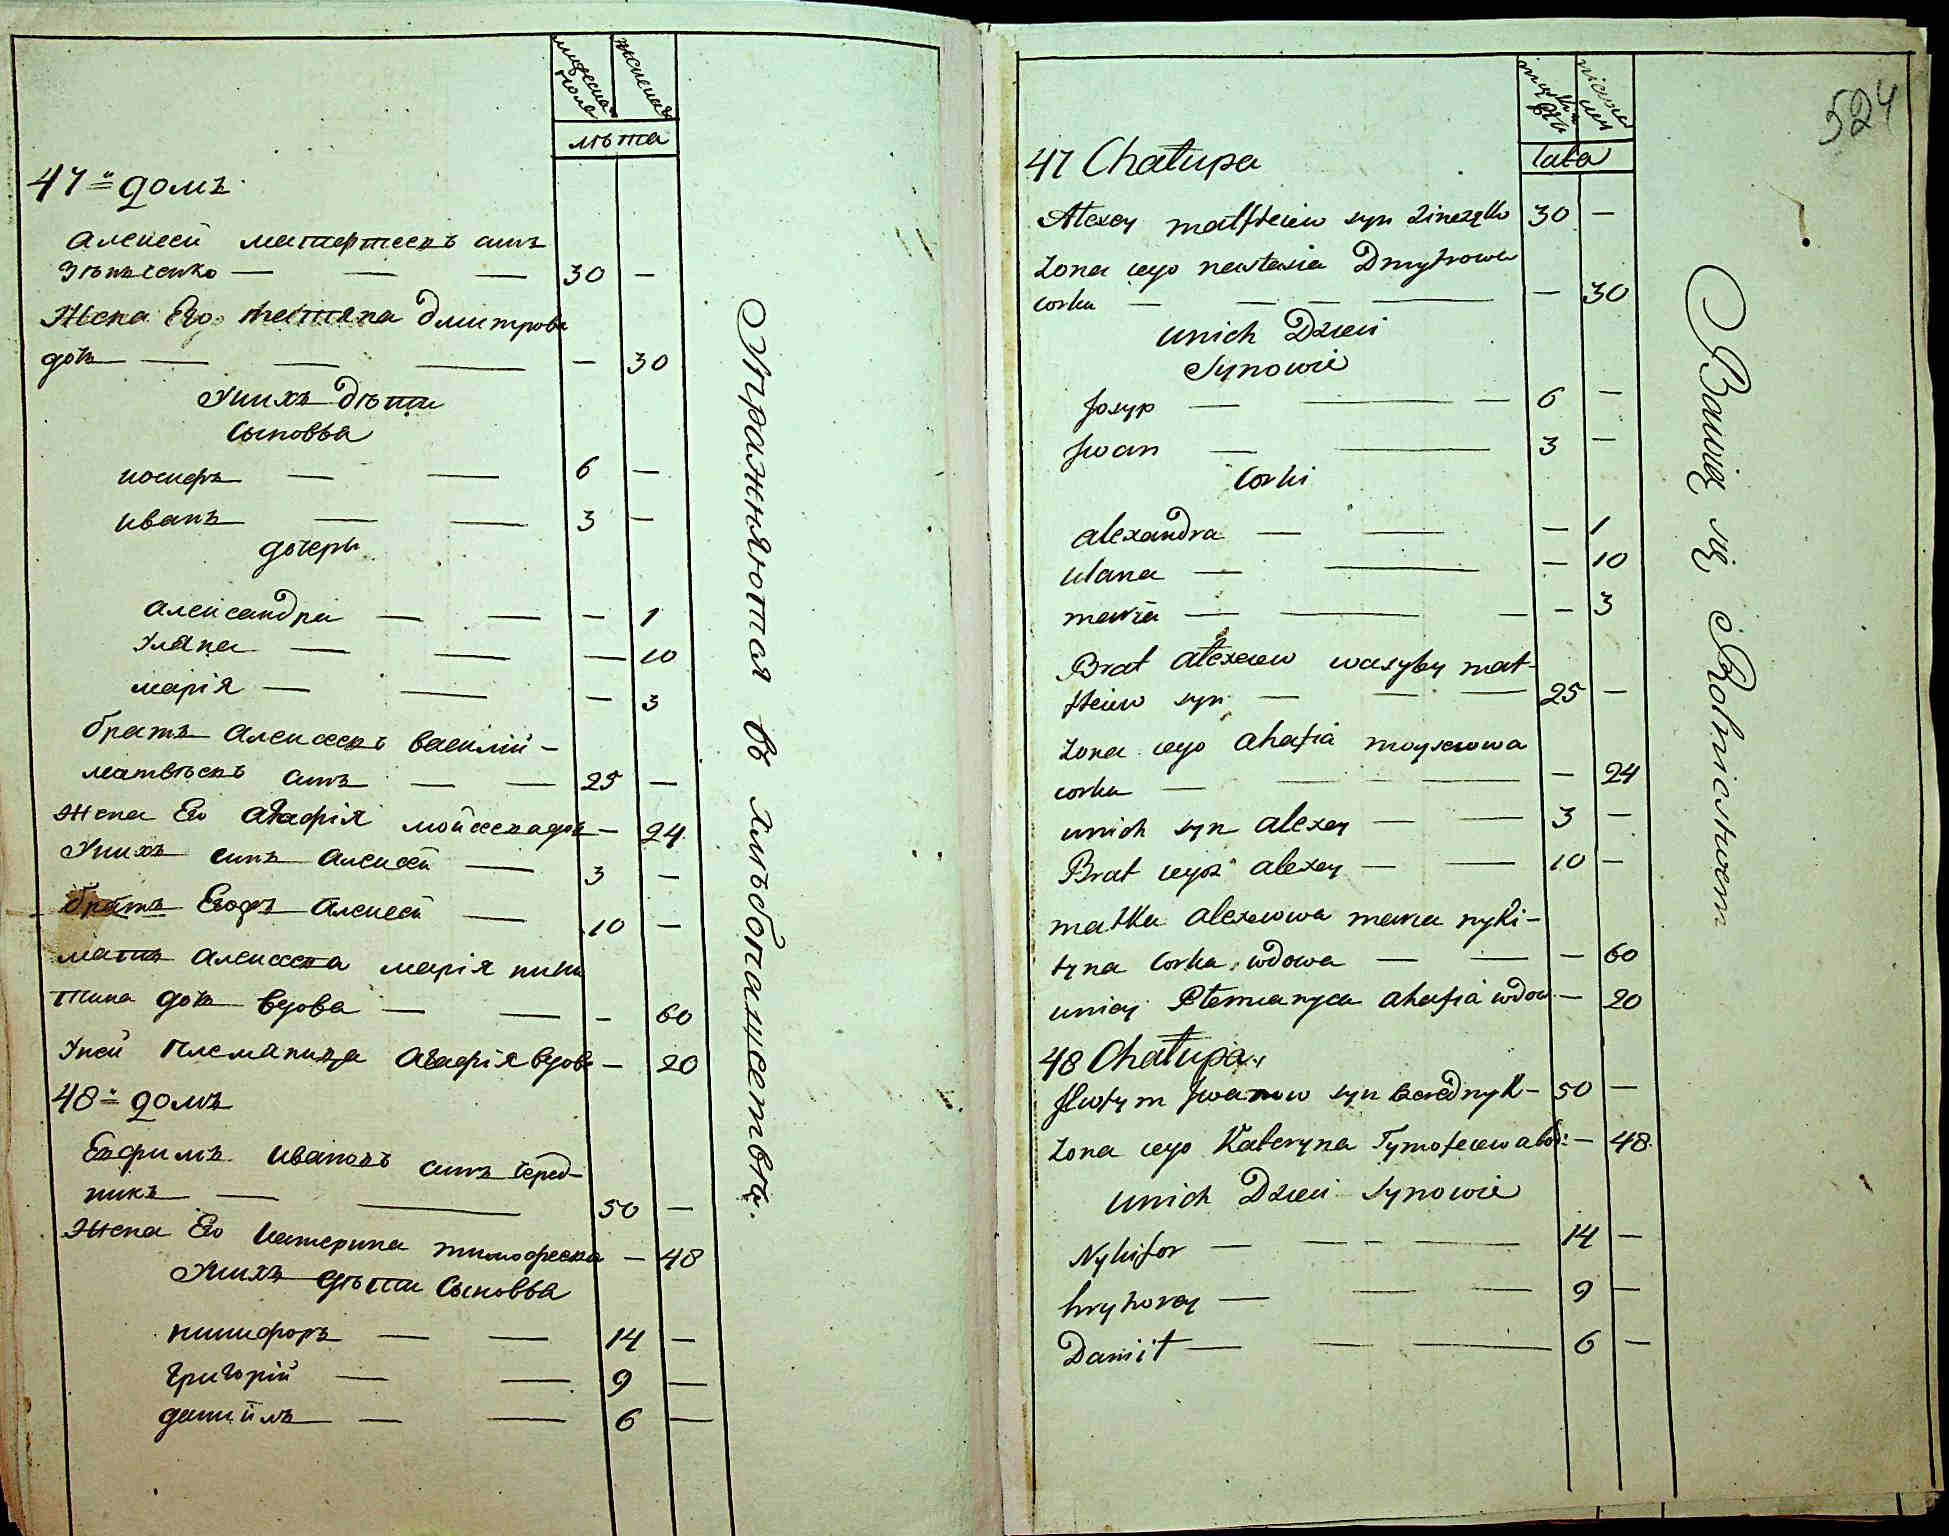 мужеска пола
женска
лѣта
47й домъ
Алексей матфеевъ сынъ
Зѣнченко — — — 30 —
Жена Его Настасія Дмитрова
дочь — — — — 30
У нихъ дѣти
Сыновья
иосифъ — — 6 —
иванъ — — 3 —
дочери
александра — — — 1
Уляна — — — 10
марія — — — 3
братъ Алексеевъ василій
матвѣевъ сынъ — — 25 —
Жена Его Агафія мойсеева дочь — 24
У нихъ сынъ Алексей — 3 —
братъ Егожъ Алексей — 10 —
мать алексеева марія ники
тина дочь вдова — — — 60
У ней племяница Агафія вдова — 20
48й домъ
Ефимъ Ивановъ сынъ Черед-
никъ — — 50 —
Жена Его Катерина тимофеева — 48
У нихъ дѣти Сыновья
никифоръ — — 14 —
григорій — — 9 —
даниилъ — — 6 —
Упражняются въ хлѣбопашествѣ.
524
lata
47 Chałupa
Alexey matfteiew syn Zinczęko 30 —
zona iego nastasia Dmytrowa
corka — — — — — 30
unich Dzieci
Synowie
Josyp — — — 6 —
Jwan — — 3 —
Corki
alexandra — — — 1
ulana — — — 10
maria — — — — 3
Brat alexeiew wasyley mat-
fteiew syn — — — 25 —
zona iego ahafia moyseiowa
corka — — — — — 24
unich syn alexey — — 3 —
Brat iegoż alexey — — 10 —
matka alexeiowa maria nyki-
tyna corka wdowa — — — 60
uniey Plemianyca ahafia wdow — 20
48 Chałupa
Jwan​ow syn Czerednyk — 50 —
zona iego Kateryna Tymofeiewa — 48
unich Dzieci Synowie
Nykifor — — — — 14 —
hryhorey — — — 9 —
Danił — — — 6 —
Bawią się Rolnictwem